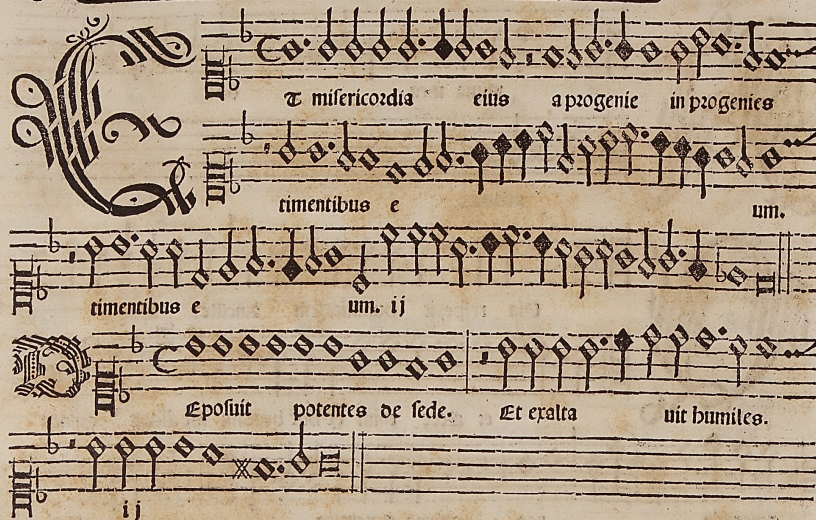 ET misericordia eius a progenie in progenies
timentibus e um.
timentibus e um. ij
DEposuit potentes de sede. Et exalta uit humiles.
ij